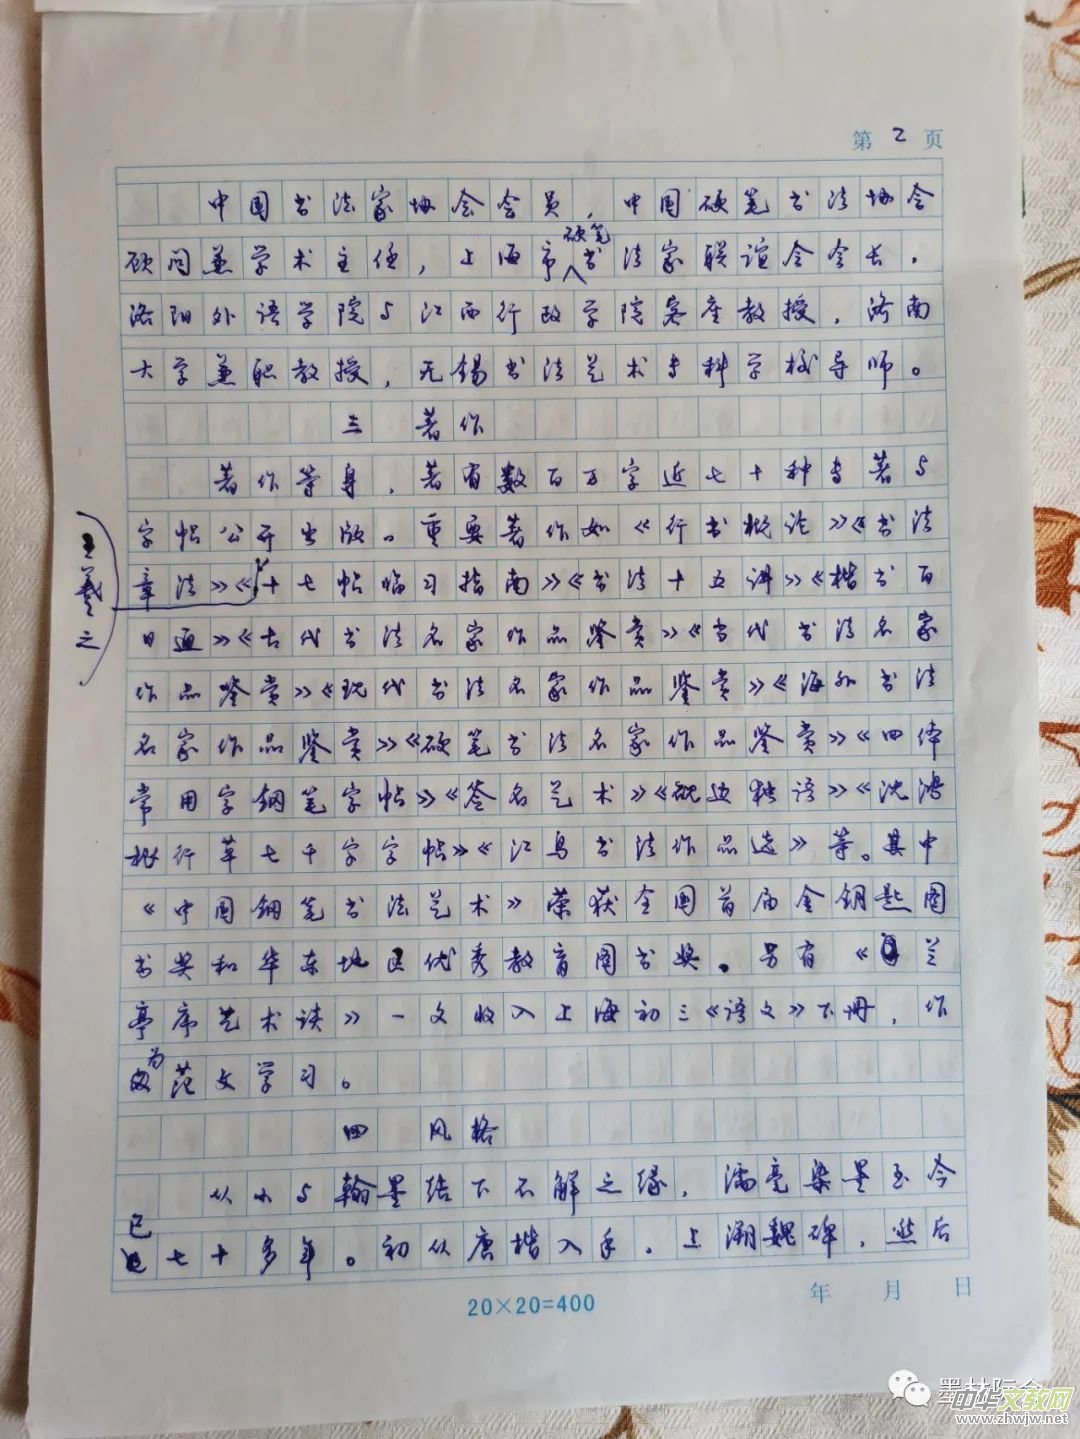 第 2 页
中国书法家协会会员，中国硬笔书法协会
顾问兼学术主任，上海市硬笔书法家联谊会会长，
洛阳外语学院与江西行政学院客座教授，济南
大学兼职教授，无锡书法艺术专科学校导师。
三 著作
著作等身，著有数百万字近七十种专著与
字帖公开出版。重要著作如《行书概论》《书法
章法》《王羲之十七帖临习指南》《书法十五讲》《楷书百
日通》《古代书法名家作品鉴赏》《当代书法名家
作品鉴赏》《现代书法名家作品鉴赏》《海外书法
名家作品鉴赏》《硬笔书法名家作品鉴赏》《四体
常用字钢笔字帖》《签名艺术》《砚边独语》《沈鸿
根行草七千字字帖》《江鸟书法作品选》等。其中
《中国钢笔书法艺术》荣获全国首届金钥匙图
书奖和华东地区优秀教育图书奖。另有《兰
亭序艺术谈》一文收入上海初三《语文》下册，作
为范文学习。
四 风格
从小与翰墨结下不解之缘，濡毫染墨至今
已七十多年。初从唐楷入手，上溯魏碑，然后
20×20=400
年 月 日
墨林际会
中华文教网
www.zhwjw.net